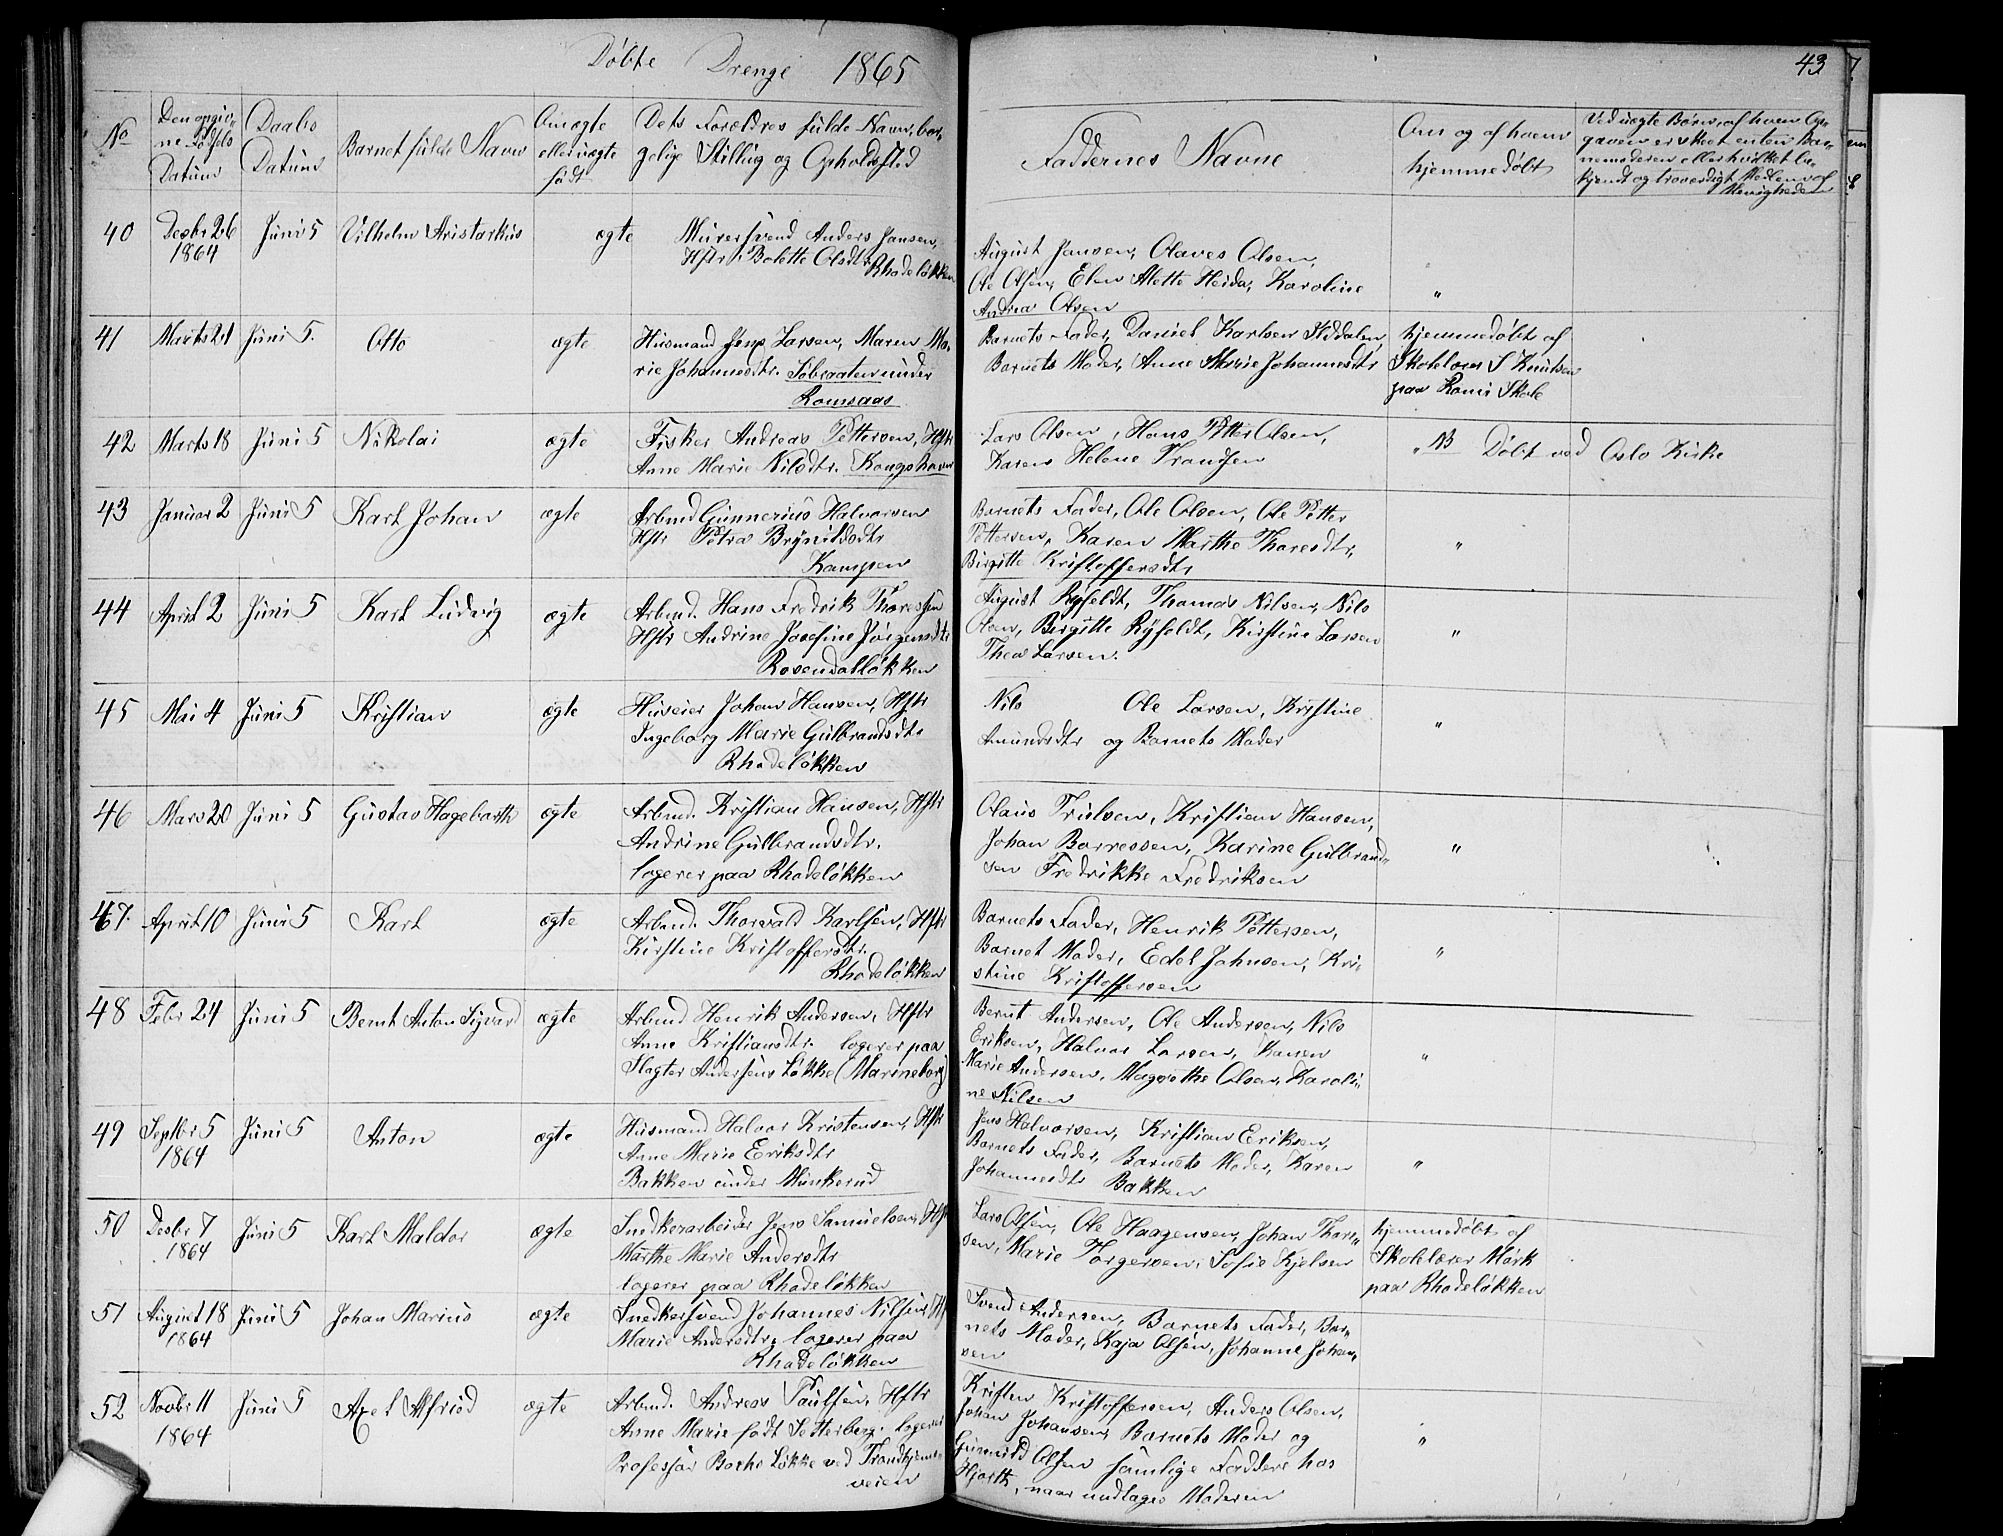 Døbte Drenge 1865
43
No
Den opgiv-
ne Fødsels
Datum
Daabs
Datum
Barnet fulde Navn
Om ægte
eller uægte
født
Dets Forældres fulde Navn, bor-
gelige Stilling og Opholdssted
Faddernes Navne
Om og af hvem
hjemmedøbt
Ved uægte Børn, af hvem Op-
gaven er skeet enten Bar-
nemoderen eller hvilket be-
kjendt og troværdigt Medlem af
Menigheden
40 Desbr 26 Juni 5 Vilhelm Aristarkus ægte Murersvend Anders Jansen,
1864 Hstr Bolette Olsdtr
Rhodeløkken
August Jansen, Olaves Olsen,
Ole Olsen, Elen Alette Heida, Karoline "
Andrea Olsen
41 Marts 21 Juni 5. Otto ægte Husmand Jens Larsen, Maren Ma-
rie Johannesdtr. Søbraaten under
Romsaas
Barnets Fader, Daniel Karlsen Kiddalen, hjemmedøbt af
Barnets Moder, Anne Marie Johannesdtr Skolelærer S Knutsen
paa Roms Skole
42 Marts 18 Juni 5 Nikolai ægte Fisker Andreas Pettersen, Hstr
Anne Marie Nilsdtr. Kongshavn
Lars Olsen, Hans Petter Olsen, " NB Døbt ved Oslo Kirke
Karen Helene Frantsen
43 Januar 2 Juni 5 Karl Johan ægte Arbmd Gunnerius Halvorsen
Hstr Petra Brynildsdtr
Kampen
Barnets Fader, Ole Olsen, Ole Petter
Pettersen, Karen Marthe Thoresdtr, "
Birgitte Kristoffersdtr
44 April 2 Juni 5 Karl Ludvig ægte Arbmd. Hans Fredrik Thoresen
Hstr Andrine Josefine Jørgensdtr
Rosendalløkken
August Ryfeldt, Thomas Nilsen, Nils
Olsen, Birgitte Ryfeldt, Kirstine Larsen "
Thea Larsen.
45 Mai 4 Juni 5 Kristian ægte Huseier Johan Hansen, Hstr
Ingeborg Marie Gulbrandsdtr
Rhodeløkken
Nils Ole Larsen, Kristine "
Amundsdtr og Barnets Moder
46 Mars 20 Juni 5 Gustav Hagebarth ægte Arbmd. Kristian Hansen, Hstr
Andrine Gulbrandsdtr.
logerer paa Rhodeløkken
Olaus Trulsen, Kristian Hansen,
Johan Borresen, Karine Gulbrand- "
sen Fredrikke Fredriksen
47. April 10 Juni 5 Karl ægte Arbmd. Thorvald Karlsen, Hstr
Kirstine Kristoffersdtr.
Rhodeløkken
Barnets Fader, Henrik Pettersen,
Barnet Moder, Edel Johnsen, Kri- "
stine Kristoffersen
48 Febr 24 Juni 5 Bernt Anton Sigvard ægte Arbmd Henrik Andersen, Hstr
Anne Kristiansdtr. logerer paa
Slagter Andersens Løkke (Marineborg)
Bernt Andersen, Ole Andersen, Nils
Eriksen, Halvor Larsen, Karen "
Marie Andersen, Magrethe Olsen, Karoli-
ne Nilsen
49 Septbr 5 Juni 5 Anton ægte Husmand Halvor Kristensen, Hstr
1864 Anne Marie Eriksdtr
Bakken under Munkerud
Jens Halvorsen, Kristian Eriksen,
Barnets Fader, Barnets Moder, Karen "
Johannesdtr Bakken
50 Desbr 7 Juni 5 Karl Maldor ægte Snedkerarbeider Jens Samuelsen, Hstr
1864 Marthe Marie Andersdtr
logerer paa Rhodeløkken
Lars Olsen, Ole Haagensen, Johan Thor- hjemmedøbt af
sen, Marie Torgersen, Sofie Kjelsen Skolelærer Mørk
paa Rhodeløkken
51 August 18 Juni 5 Johan Marius ægte Snedkersvend Johannes Nilsen, Hstr
1864 Marie Andersdtr. logerer paa
Rhodeløkken
Svend Andersen, Barnets Fader, Bar-
nets Moder, Kaja Olsen, Johanne Johan-
sen
52 Novbr 11 Juni 5 Axel Alfred ægte Arbmd. Andreas Paulsen, Hstr
1864 Anne Marie født Setterberg. logerer
Professor Boeks Løkke ved Trondhjems-
veien
Kristen Kristoffersen, Anders Olsen,
Johan Johansen, Barnets Moder og "
Gunnild Olsen samlige Faddere hos
Hjorth, naar undtages Moderen